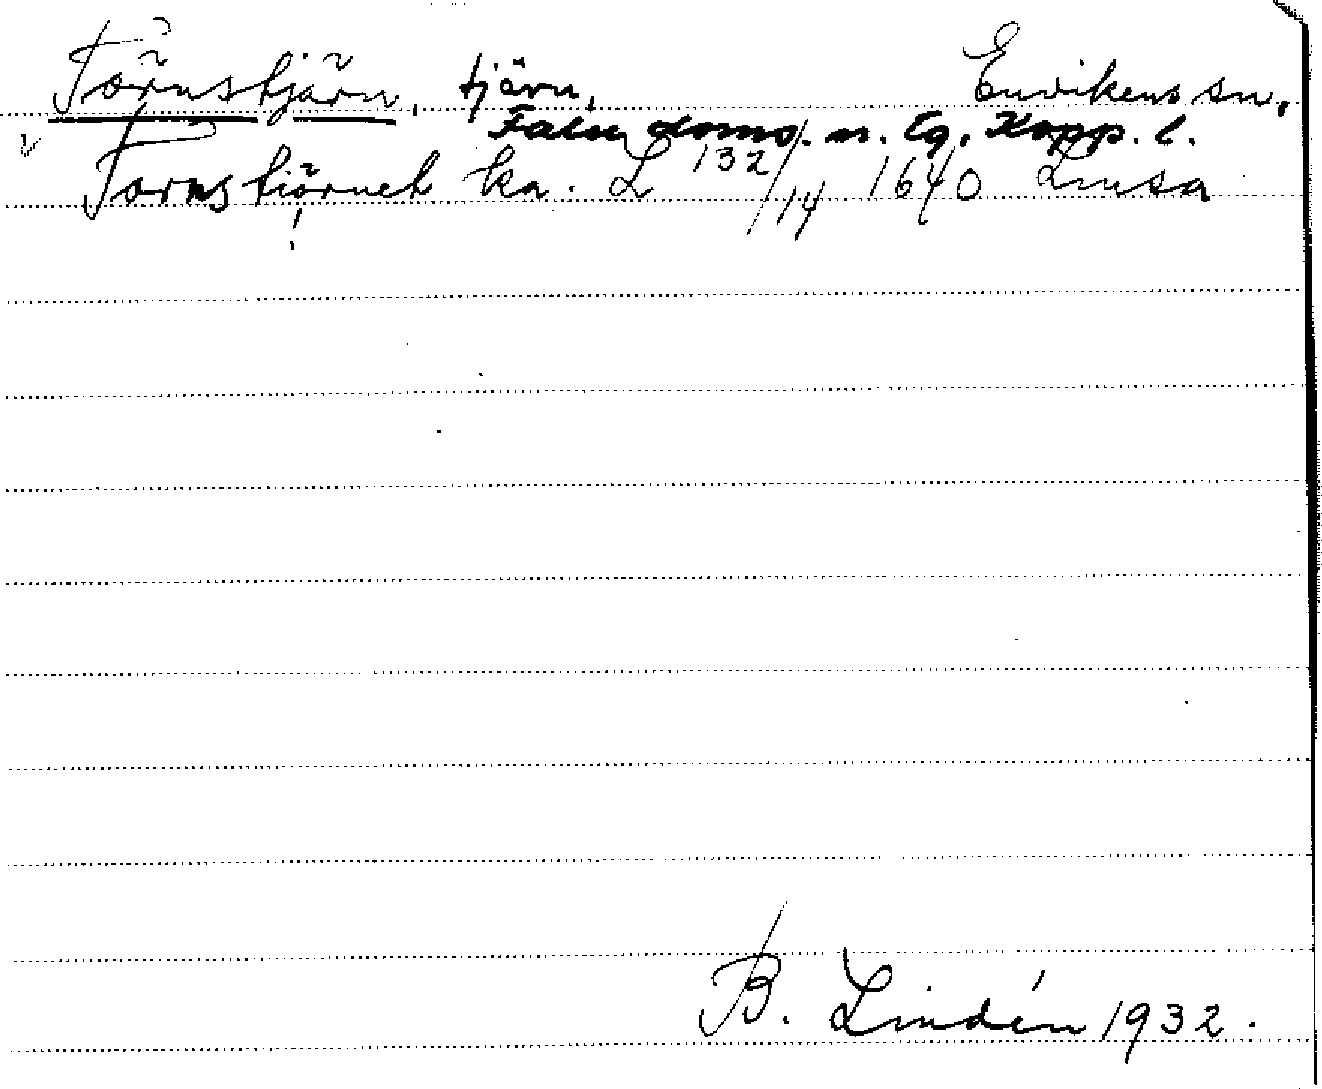 Törnstjärn, tjärn, Envikens sn,
Falu doms. n. Eg. Kopp. l.
v Tornstiörnet ka. L 132/14 1640 Linsa
!
B. Lindén 1932.